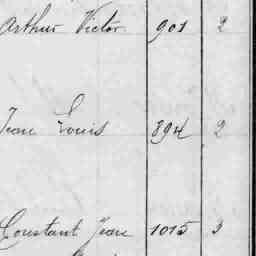 Arthur Victor 901 2
Jean Louis 894 2
Constant Jean 1015 3